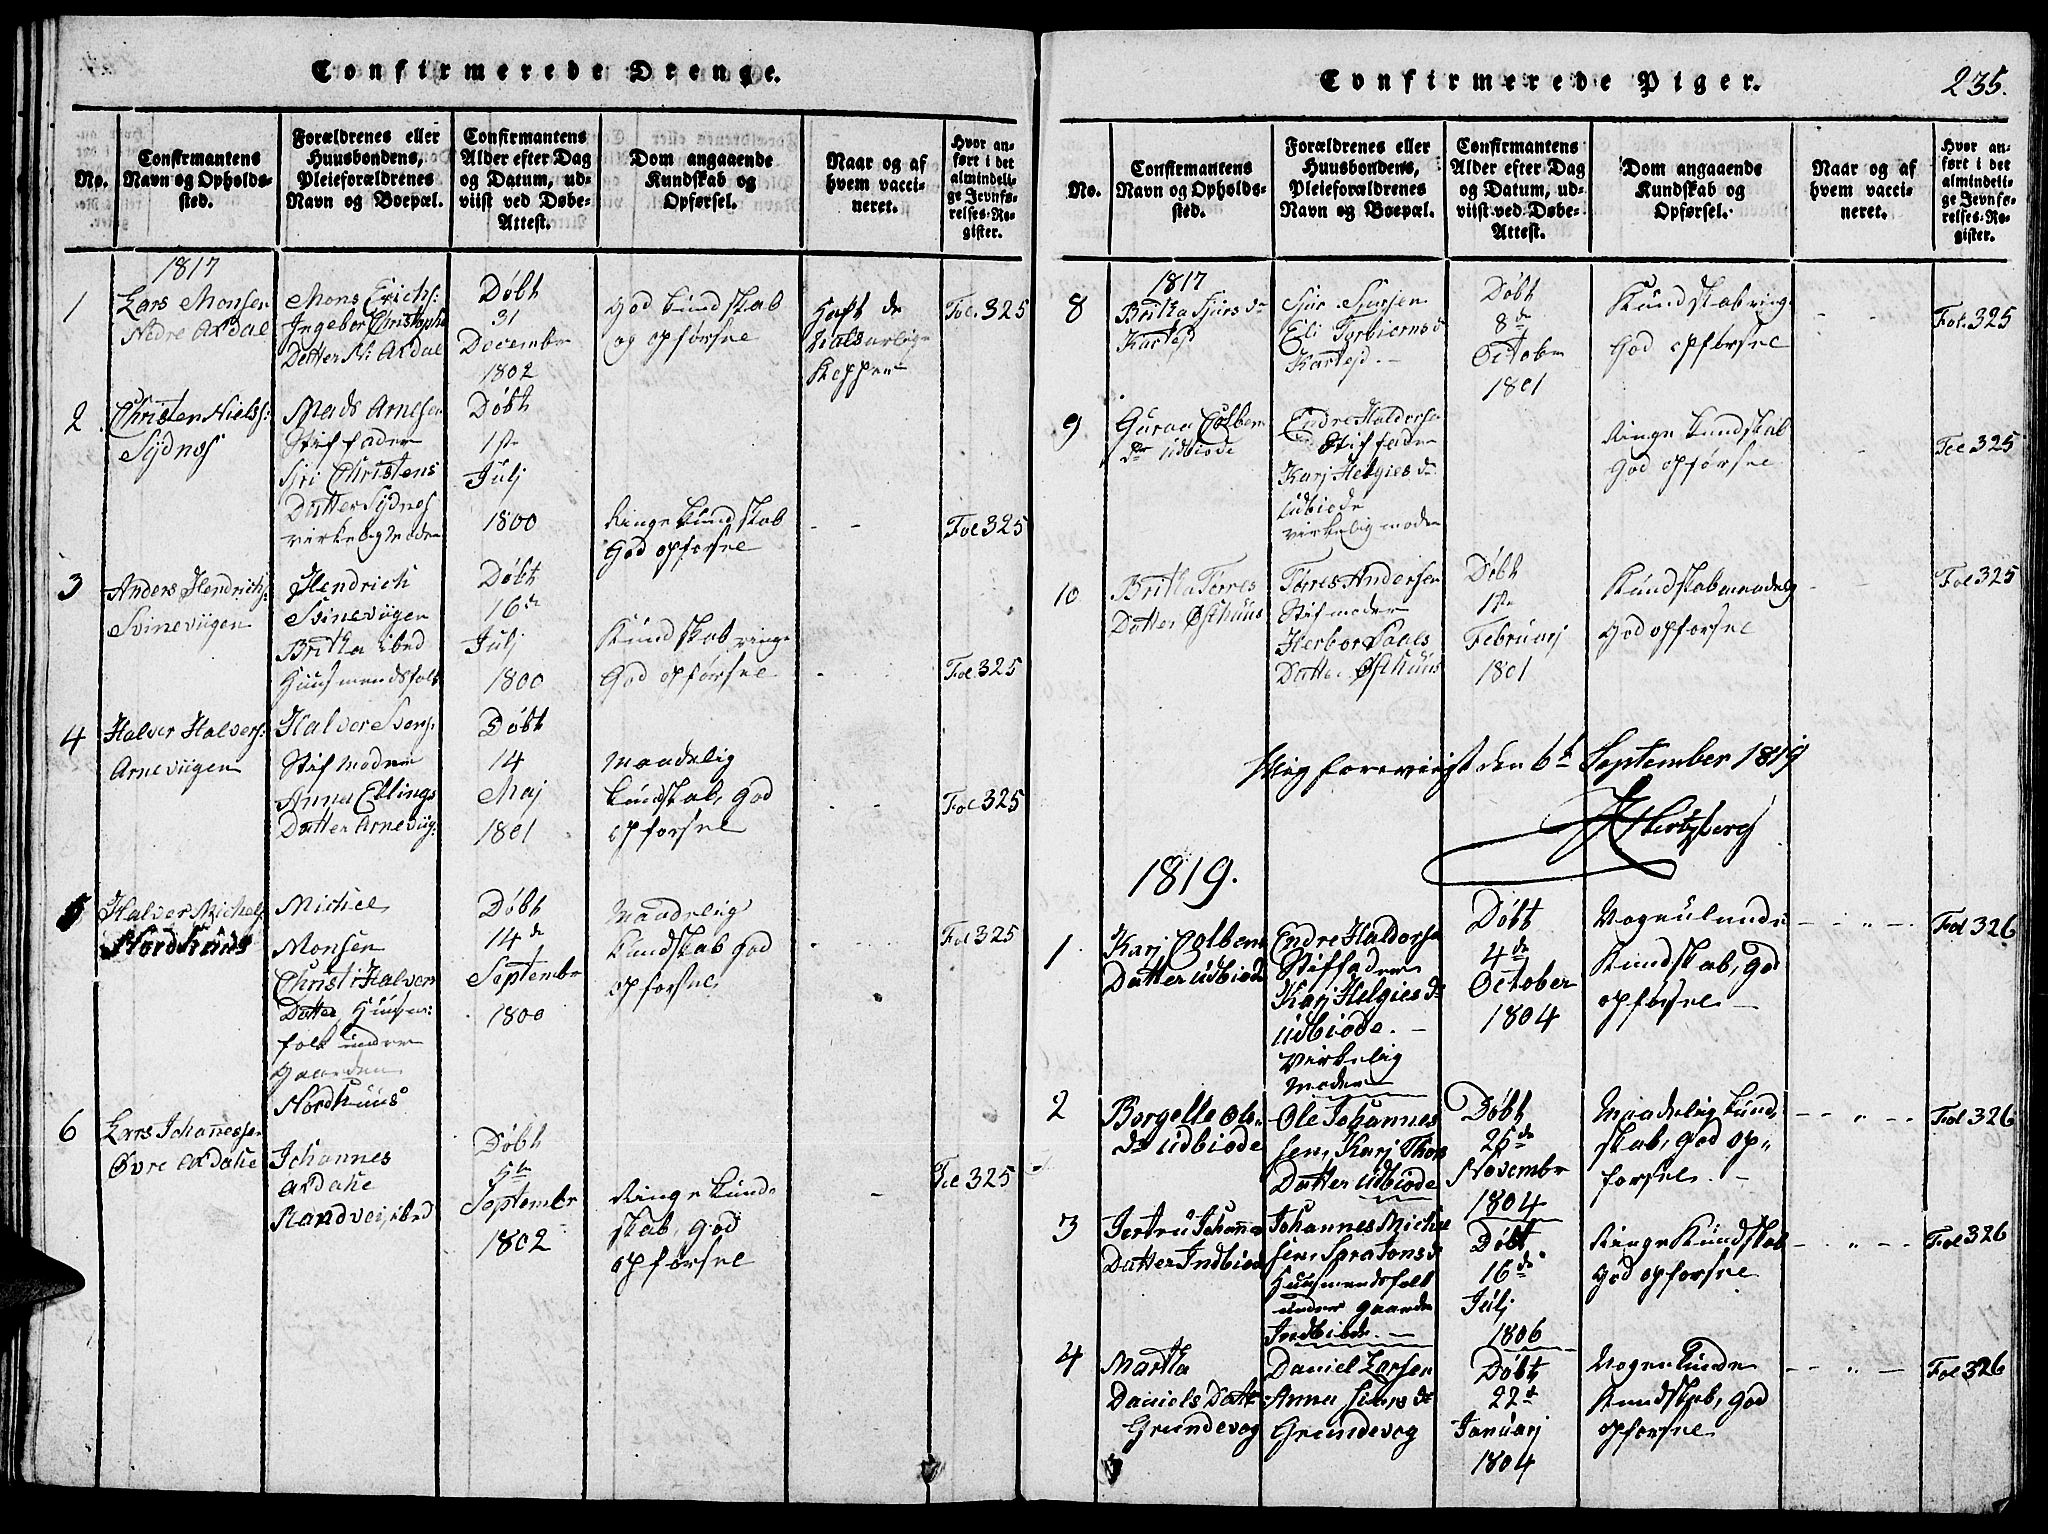 Confirmerede Drenge.
No.
Confirmantens
Navn og Opholds-
sted.
Forældrenes eller
Huusbondens,
Pleieforældrenes
Navn og Boepæl.
Confirmantens
Alder efter Dag
og Datum, ud-
viist ved Døbe-
Attest.
Dom angaaende
Kundskab og
Opførsel.
Naar og af
hvem vacci-
neret.
Hvor an-
ført i det
almindeli-
ge Jevnfø-
relses-Re-
gister.
1817
1
Lars Monsen
Nedre Axdal
Mons Erichs:
Ingebor Christophe
Datter N: Axdal
Døbt
31
December
1802
God Kundskab
og opførsel
Haft de
Kopper
Fol. 325
2
Christen Niels:
Sydnes
Mads Arnesen
Stif fader
Siri Christens
Datter Sydnes
virkelig Moder
Døbt
1ste
Julj
1800
Ringe Kundskab
God opførsel
- -
Fol 325
3
Anders Hendrichs:
Svineviigen
Hendrich
Svineviigen
Britha ibed
Huusmendsfolk
Døbt
16de
Julj
1800
Kundskab ringe
God opførsel
Fol. 325
4
Halver Halvers:
Arneviigen
Halver Ivers:
Stif moder
Anna Eblings
Datter Arneviig:
Døbt
14
Maj
1801
Maadelig
Kundskab, God
opførsel
- -
Fol 325
5
Halver Michels
Nordhuus
Michel
Monsen
Christi Halvers
Datter, Huusm:
folk under
Gaarden
Nordhuus
Døbt
14de
September
1800
Maadelig
Kundskab God
opførsel
Fol 325
6
Lars Johannessen
Øvre Axdahl
Johannes
Axdahl
Randvei, ibed
Døbt
5te
September
1802
Ringe Kund-
skab, God
opførsel
-
Fol 325
Confirmerede Piger.
235.
No.
Confirmantens
Navn og Opholds-
sted.
Forældrenes eller
Huusbondens,
Pleieforældrenes
Navn og Boepæl.
Confirmantens
Alder efter Dag
og Datum, ud-
viist ved Døbe-
Attest.
Dom angaaende
Kundskab og
Opførsel.
Naar og af
hvem vacci-
neret.
Hvor an-
ført i det
almindeli-
ge Jevnfø-
relses-Re-
gister.
1817
8
Britha Sjurs dr
Kartesd
Sjur Sjursen
Eli Torbiørnsd
Kartesd. -
Døbt
8de
October
1801
Kundskab ringe
God opførsel
- -
Fol. 325
9
Guroa Colben
dtr Udbiode
Endre Haldorse
Stif fader
Karj Helgies dr
Udbiode
virkelig moder
Ringe Kundskab
God opførsel
- -
Fol 325
10
Britha Torres
Datter Østhuus
Torres Andersen
Stif moder
Herbor Paals
Datter Østhuus
Døbt
1ste
Februarj
1801
Kundskab maadelig
God opførsel
- -
Fol 325
Mig foreviist den 6te September 1819
Hertzberg
1819.
1
Karj Colbens
Datter Udbiode
Endre Haldorse
Stiffader
Karj Helgies dr
Udbiode. -
Virkelig
Moder
Døbt
4de
October
1804
Kundskab, God
opførsel -
- - " - -
Fol 326
2
Borgelle Ole-
dr Udbiode
Ole Johannes
sen, Karj Thor
Datter Udbiode
Døbt
25de
November
1804
Maadelig Kund-
skab, God op-
førsel. -
- - " - -
Fol 326
3
Jertrú Johannes
Datter Indbiode
Johannes Michel
sen, Sara Jons d
Huusmendsfolk
under gaarden
Indbiode. -
Døbt
16de
Julj
1806
Ringe Kundskab
God opførsel
- - " - -
Fol 326
4
Martha
Daniels Datt
Grundevog
Daniel Larsen
Anna Siurs dr
Grundevog
Døbt
22de
Januarj
1804
Kundskab, God
opførsel
- - " -
Fol 326